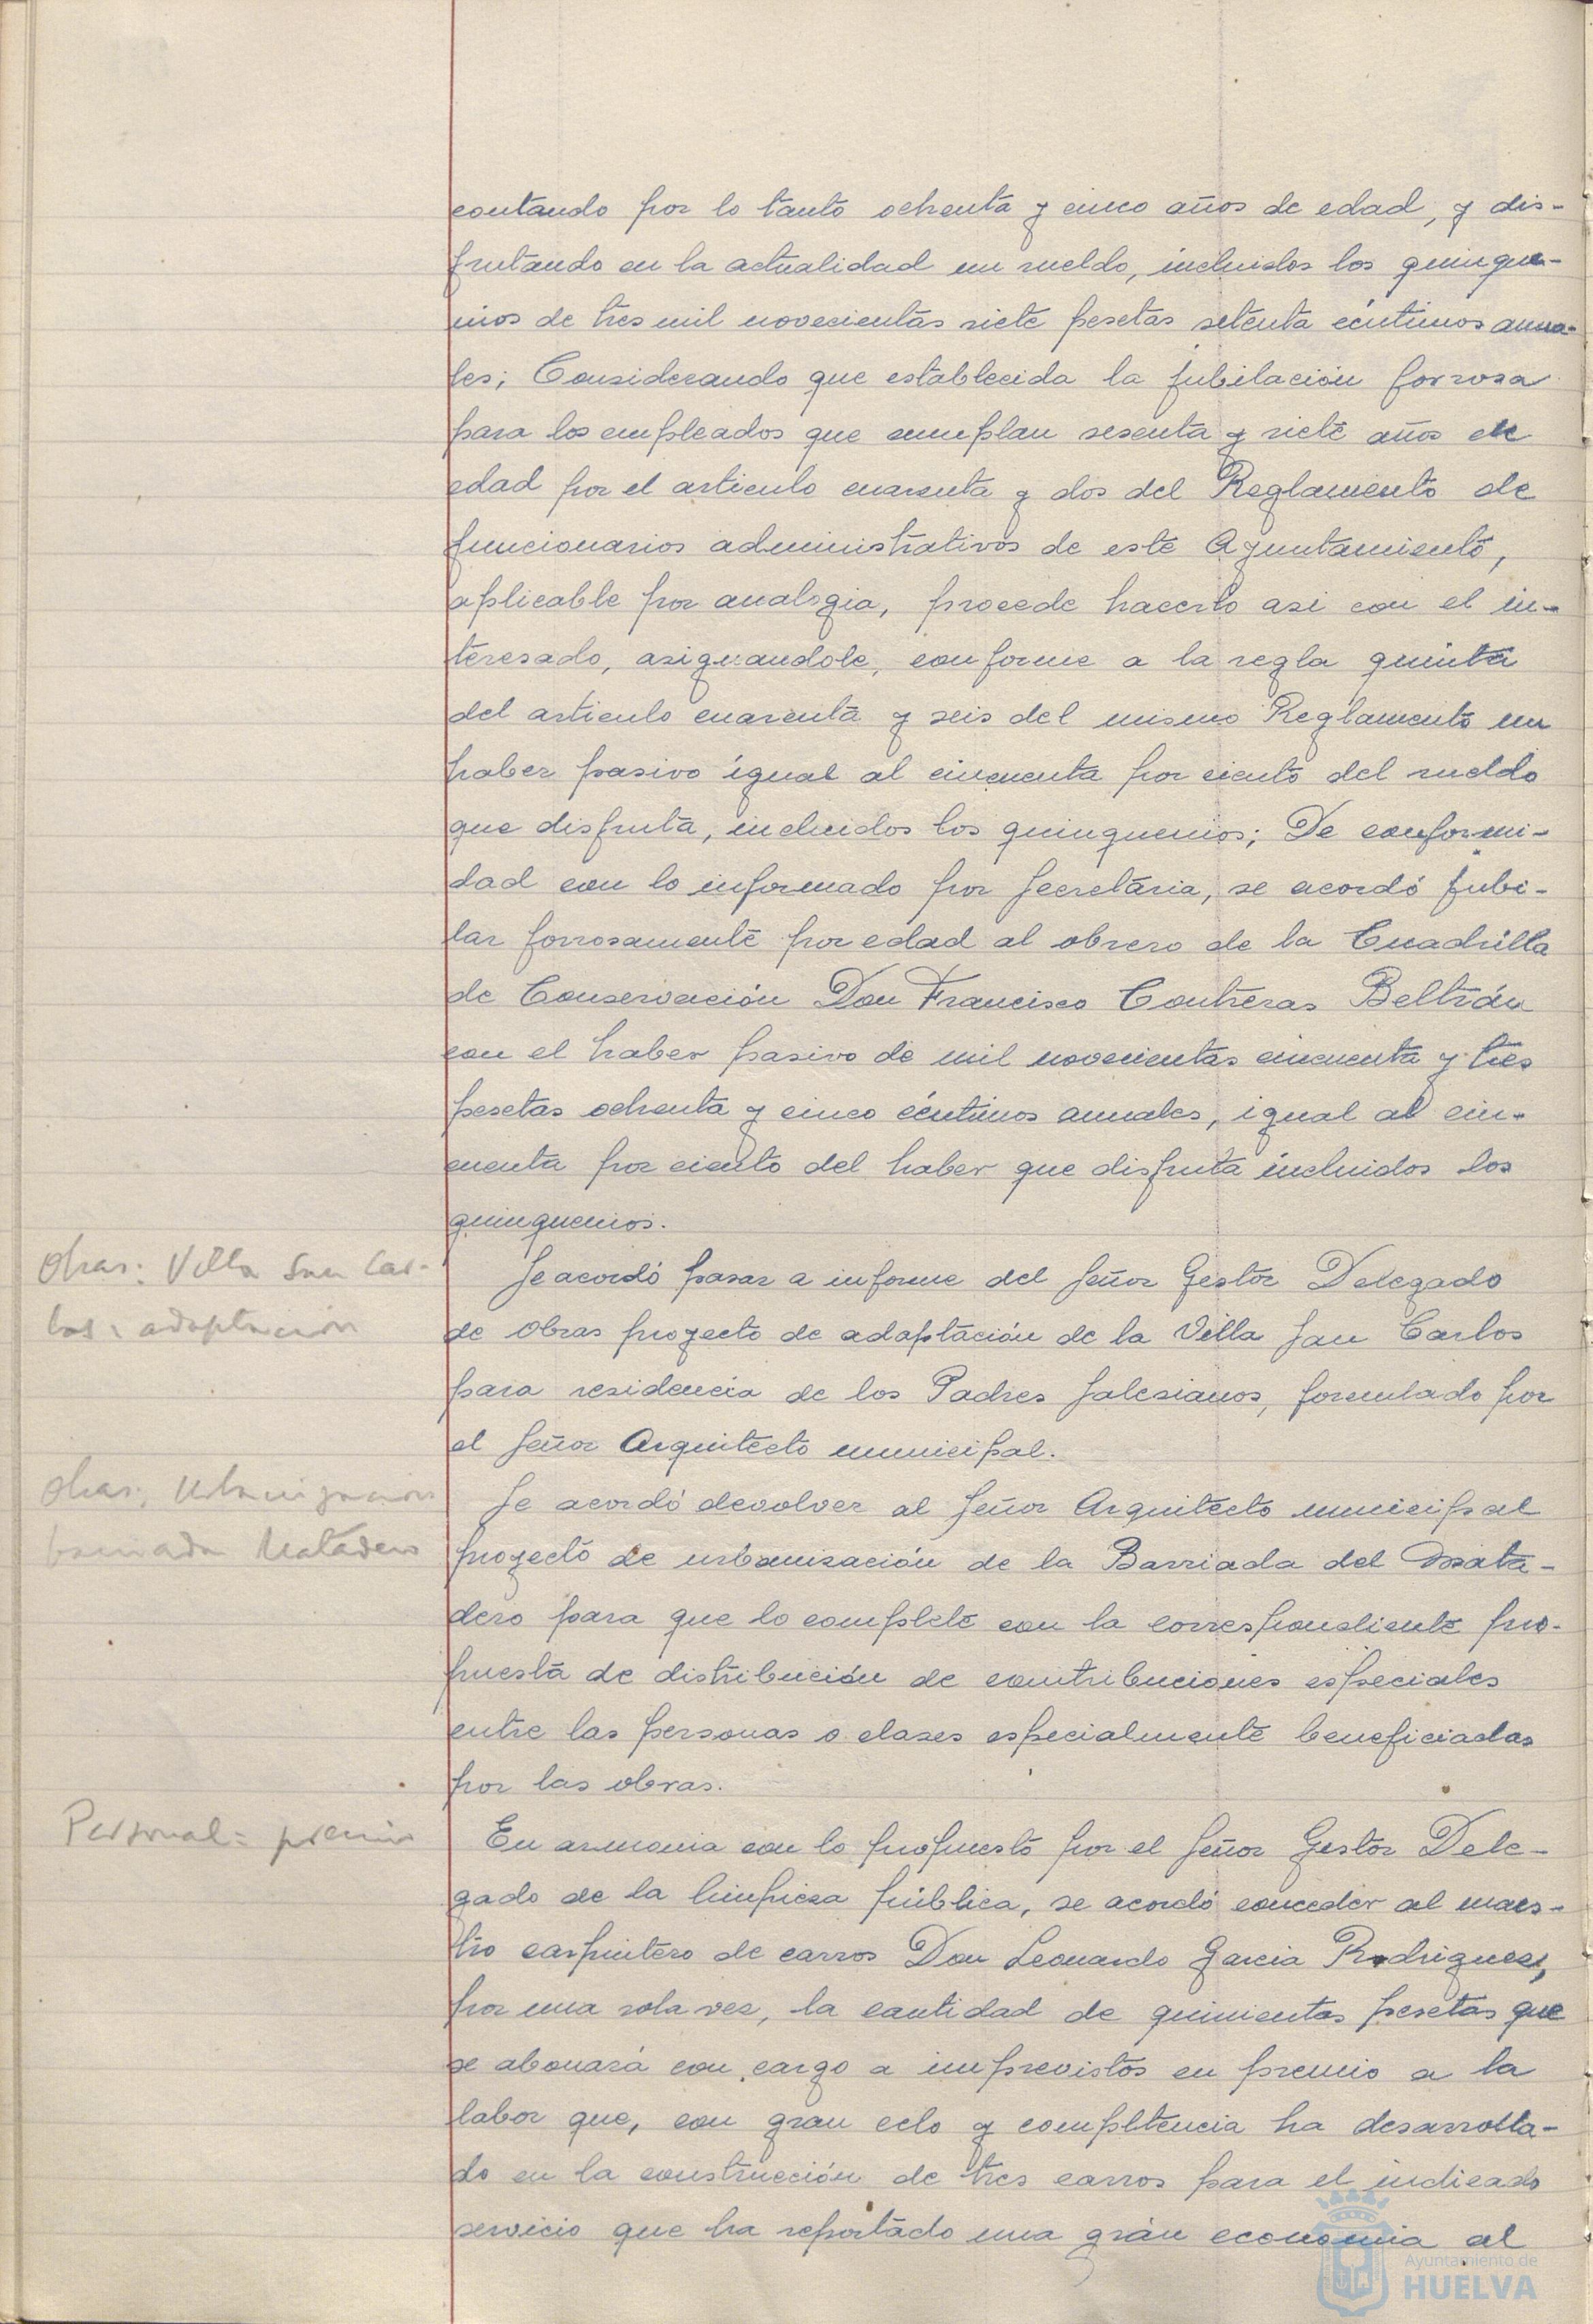 contando por lo tanto ochenta y cinco años de edad, y dis-
frutando en la actualidad un sueldo, incluidos los quinque-
nios de tres mil novecientas siete pesetas setenta céntimos anua-
les; Considerando que establecida la jubilación forzosa
para los empleados que cumplan sesenta y siete años de
edad por el articulo cuarenta y dos del Reglamento de
funcionarios administrativos de este Ayuntamiento,
aplicable por analogia, procede hacerlo asi con el in-
teresado, asignandole, conforme a la regla quinta
del articulo cuarenta y seis del mismo Reglamento un
haber pasivo igual al cincuenta por ciento del sueldo
que disfruta, incluidos los quinquenios; De conformi-
dad con lo informado por Secretaria, se acordó jubi-
lar forzosamente por edad al obrero de la Cuadrilla
de Conservación Don Francisco Contreras Beltrán
con el haber pasivo de mil novecientas cincuenta y tres
pesetas ochenta y cinco céntimos anuales, igual al cin-
cuenta por ciento del haber que disfruta incluidos los
quinquenios.
Obras: Villa San Car-
los: adaptación
Se acordó pasar a informe del Señor Gestor Delegado
de Obras proyecto de adaptación de la Villa San Carlos
para residencia de los Padres Salesianos, formulado por
el Señor Arquitecto municipal.
Obras: Urbanización
barriada Matadero
Se acordó devolver al Señor Arquitecto municipal
proyecto de urbanización de la Barriada del Mata-
dero para que lo complete con la correspondiente pro-
puesta de distribución de contribuciones especiales
entre las personas o clases especialmente beneficiadas
por las obras.
Personal: premio
En armonia con lo propuesto por el Señor Gestor Dele-
gado de la limpieza pública, se acordó conceder al maes-
tro carpintero de carros Don Leonardo Garcia Rodriguez,
por una sola vez, la cantidad de quinientas pesetas que
se abonará con cargo a imprevistos en premio a la
labor que, con gran celo y competencia ha desarrolla-
do en la construcción de tres carros para el indicado
servicio que ha reportado una grán economia al
Ayuntamiento de
HUELVA